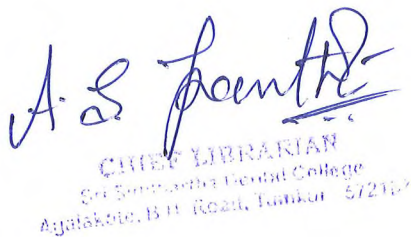 A. S.
CHIEF LIBRARIAN
Sri Siddhartha Dental College
Agalakote, B H Road, Tumkur